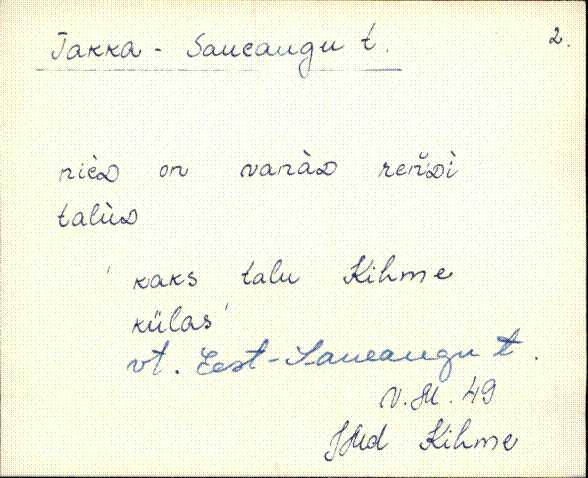 Takka - Saueaugu t. 2.
nièᴅ on vanàᴅ reňᴅì
talùᴅ
' kaks talu Kihme
külas'
vt. Eest-Saueaugu t.
V.M. 49
JMd Kihme